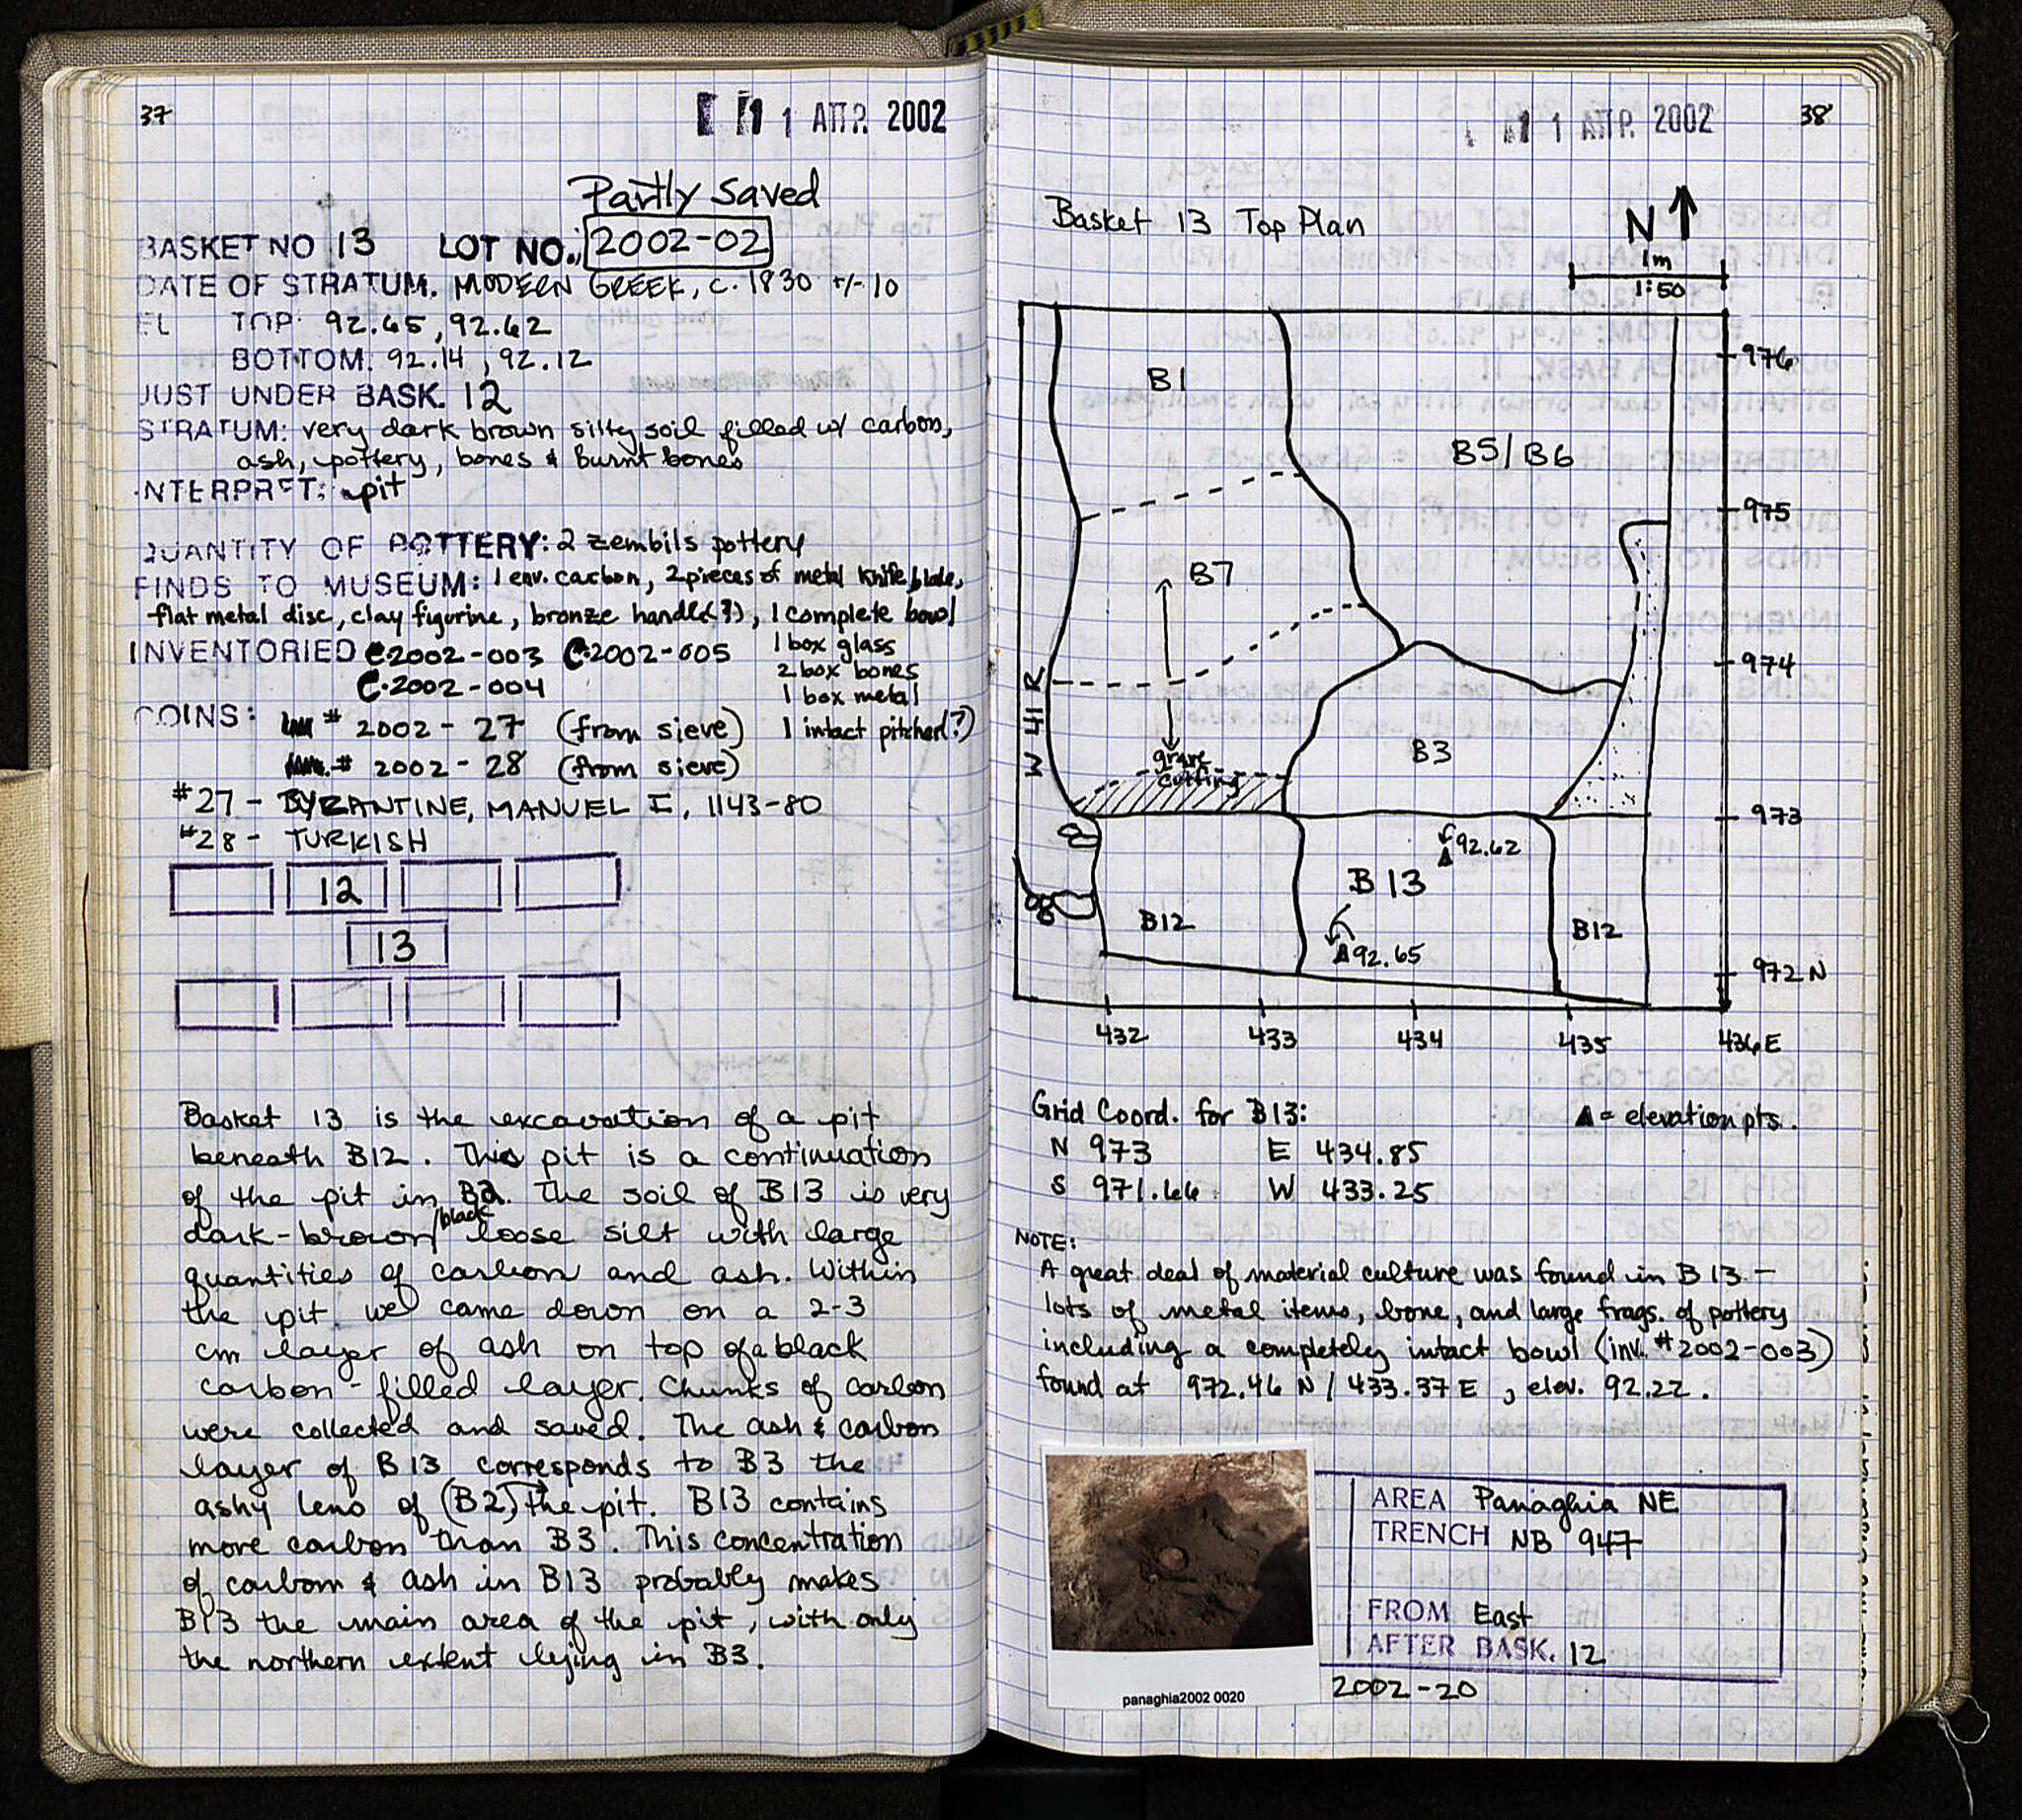 37
1 1 ΑΠΡ. 2002
Partly Saved
BASKET NO 13 LOT NO. 2002-02
DATE OF STRATUM. MODERN GREEK, c. 1830 +/- 10
EL TOP: 92.65, 92.62
BOTTOM: 92.14, 92.12
JUST UNDER BASK. 12
STRATUM: very dark brown silty soil filled w/ carbon,
ash, pottery, bones & burnt bones
INTERPRET: pit
QUANTITY OF POTTERY: 2 zembils pottery
FINDS TO MUSEUM: 1 env. carbon, 2 pieces of metal knife blade,
flat metal disc, clay figurine, bronze handle(?), 1 complete bowl
1 box glass
2 box bones
1 box metal
1 intact pitcher(?)
INVENTORIED C.2002-003 C.2002-005
C.2002-004
COINS: # 2002-27 (from sieve)
# 2002-28 (from sieve)
#27 - BYZANTINE, MANUEL I, 1143-80
#28 - TURKISH
12
13
Basket 13 is the excavation of a pit
beneath B12. This pit is a continuation
of the pit in B2. The soil of B13 is very
dark-brown/black loose silt with large
quantities of carbon and ash. Within
the pit we came down on a 2-3
cm layer of ash on top of a black
carbon-filled layer. Chunks of carbon
were collected and saved. The ash & carbon
layer of B13 corresponds to B3 the
ashy lens of (B2) the pit. B13 contains
more carbon than B3. This concentration
of carbon & ash in B13 probably makes
B13 the main area of the pit, with only
the northern extent lying in B3.
1 1 ΑΠΡ. 2002
38
Basket 13 Top Plan
N
1m
1:50
B1
B5/B6
B7
B3
grave
cutting
W 41 R
B12
B 13
92.62
92.65
B12
976
975
974
973
972 N
432 433 434 435 436 E
Grid Coord. for B13:
▲ = elevation pts.
N 973 E 434.85
S 971.66 W 433.25
NOTE:
A great deal of material culture was found in B13 -
lots of metal items, bone, and large frags. of pottery
including a completely intact bowl (inv. #2002-003)
found at 972.46 N / 433.37 E, elev. 92.22.
panaghia2002 0020
AREA Panaghia NE
TRENCH NB 947
FROM East
AFTER BASK. 12
2002-20